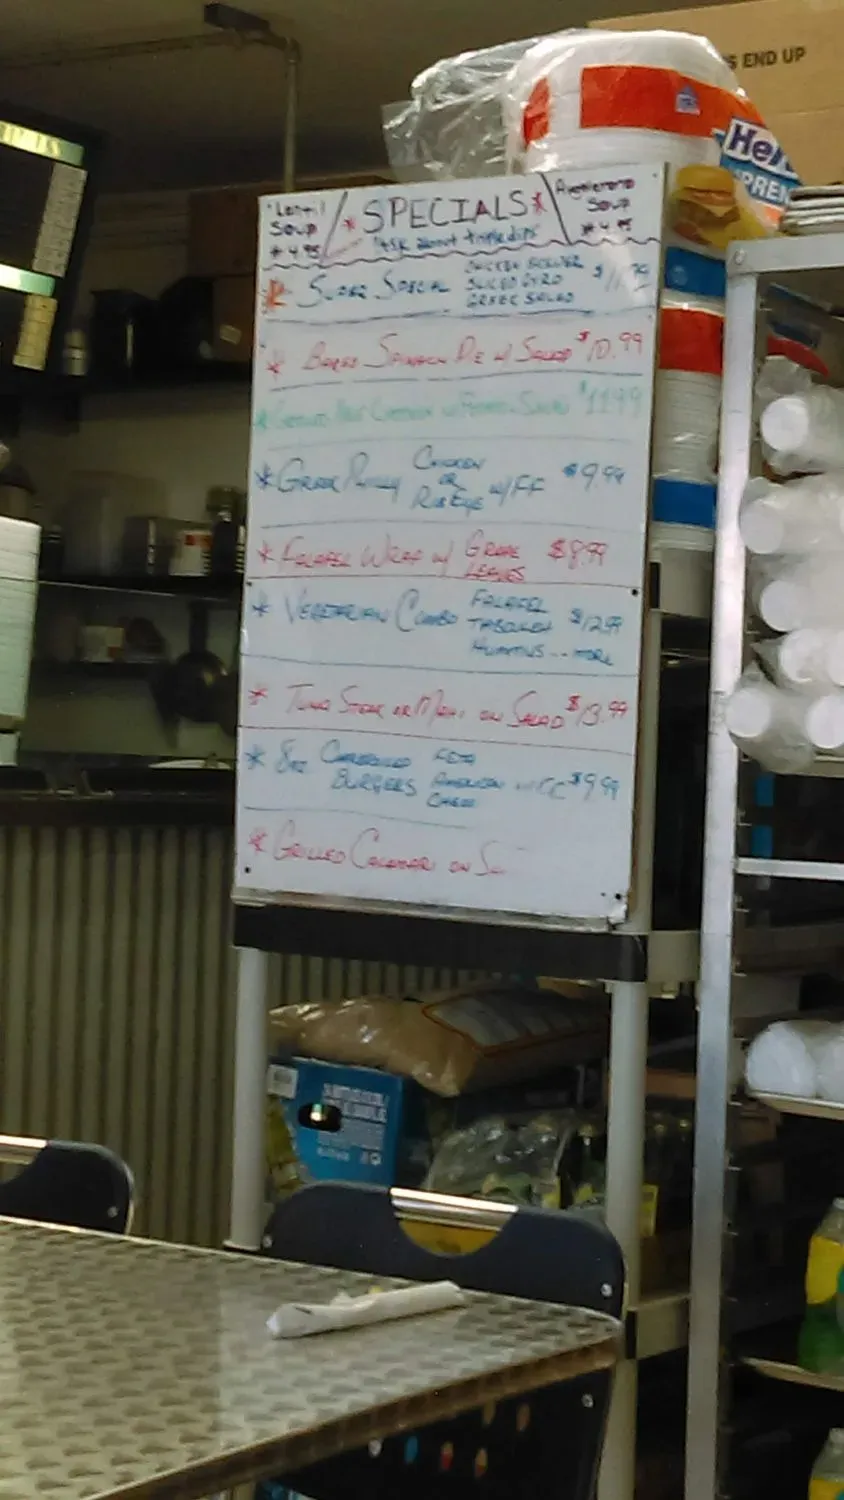 S END UP
Lentil
Soup
$4.95
* SPECIALS *
Ask about triple dips
Avgolemono
Soup
$4.95
* SUPER SPECIAL CHICKEN
SLICED GYRO
GREEK SALAD
$11.99
* BAKED SPINACH PIE W/ SALAD $10.99
* CHICKEN W/ SALAD $11.99
* GREEK PHILLY CHICKEN
OR
RIBEYE
W/FF $9.99
* FALAFEL WRAP W/ GRAPE
LEAVES
$8.99
* VEGETARIAN COMBO FALAFEL
TABOULEH
HUMMUS... MORE
$12.99
* TUNA STEAK OR MAHI ON SALAD $13.99
* 8oz CHARBROILED
BURGERS
FETA
AMERICAN
CHEESE
$9.99
* GRILLED CALAMARI ON